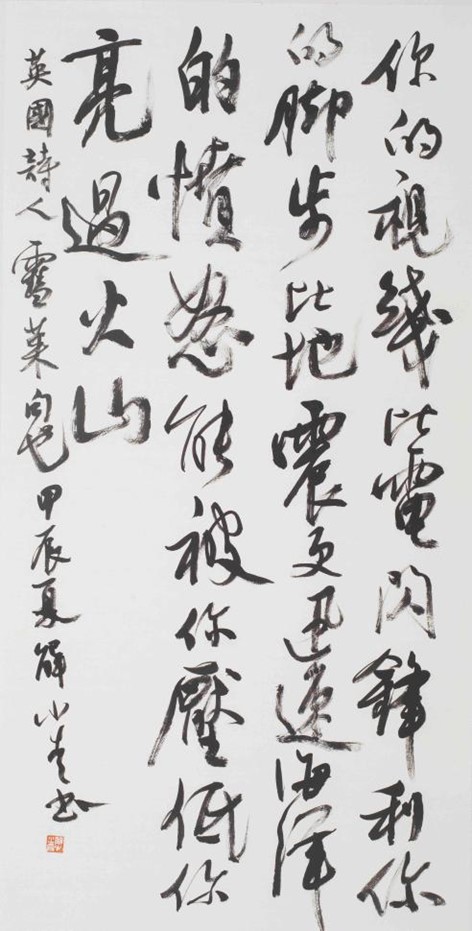 你的視綫比電閃鋒利你
的脚步比地震更迅速海洋
的憤怒能被你壓低你
亮過火山
英國詩人雪莱句也甲辰夏解小青书